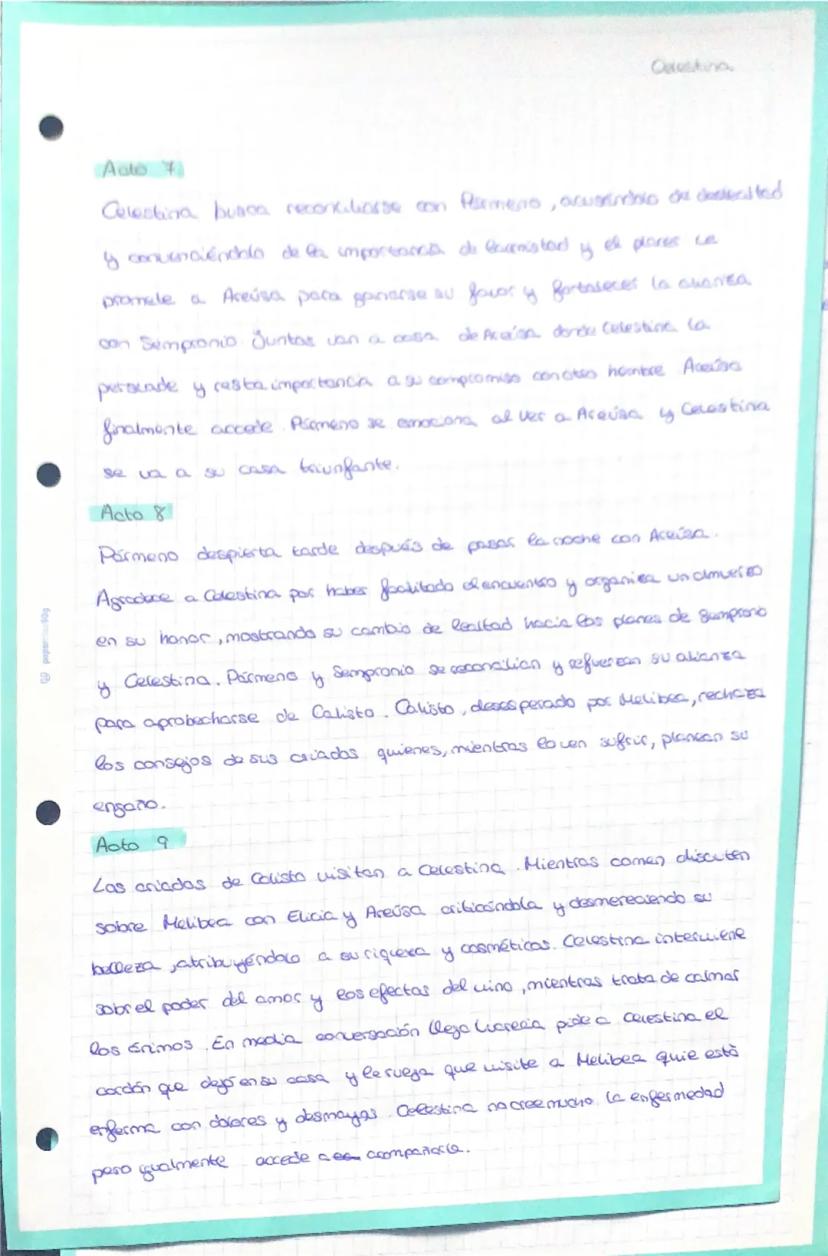 Celestina
Acto 7
Celestina busca reconciliarse con Pármeno, acusándolo de deslealtad
y convenciéndolo de la importancia de la amistad y el placer Le
promete a Areúsa para ganarse su favor y fortalecer la alianza
con Sempronio. Juntos van a casa de Areúsa donde Celestina la
persuade y resta importancia a su compromiso con otro hombre Areúsa
finalmente accede. Pármeno se emociona al ver a Areúsa y Celestina
se va a su casa triunfante.
Acto 8
Pármeno despierta tarde después de pasar la noche con Areúsa.
Agradece a Celestina por haber facilitado el encuentro y organiza un almuerzo
en su honor, mostrando su cambio de lealtad hacia los planes de Sempronio
y Celestina. Pármeno y Sempronio se reconcilian y refuerzan su alianza
para aprobecharse de Calisto. Calisto, desesperado por Melibea, rechaza
los consejos de sus criados, quienes, mientras lo ven sufrir, planean su
engaño.
Acto 9
Los criados de Calisto visitan a Celestina. Mientras comen discuten
sobre Melibea con Elicia y Areúsa criticándola y desmereciendo su
belleza, atribuyéndolo a su riqueza y cosméticos. Celestina interviene
sobre el poder del amor y los efectos del vino, mientras trata de calmar
los ánimos. En media conversación llega Lucrecia pide a Celestina el
cordón que dejó en su casa y le ruega que visite a Melibea quie está
enferma con dolores y desmayos. Celestina no cree mucho la enfermedad
pero igualmente accede a acompañarla.